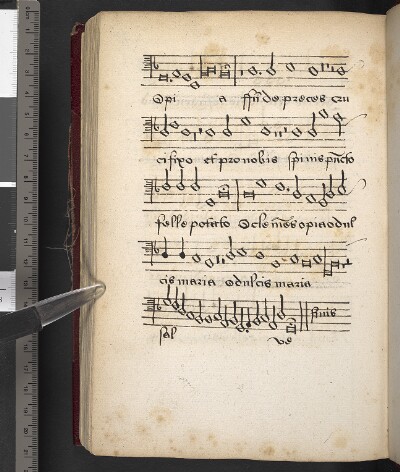 Opi a ffūde preces cru
cifixo et pro nobis spinis pūcto
felle potato O clemēs o pia o dul
cis maria o dulcis maria
finis
sal ve